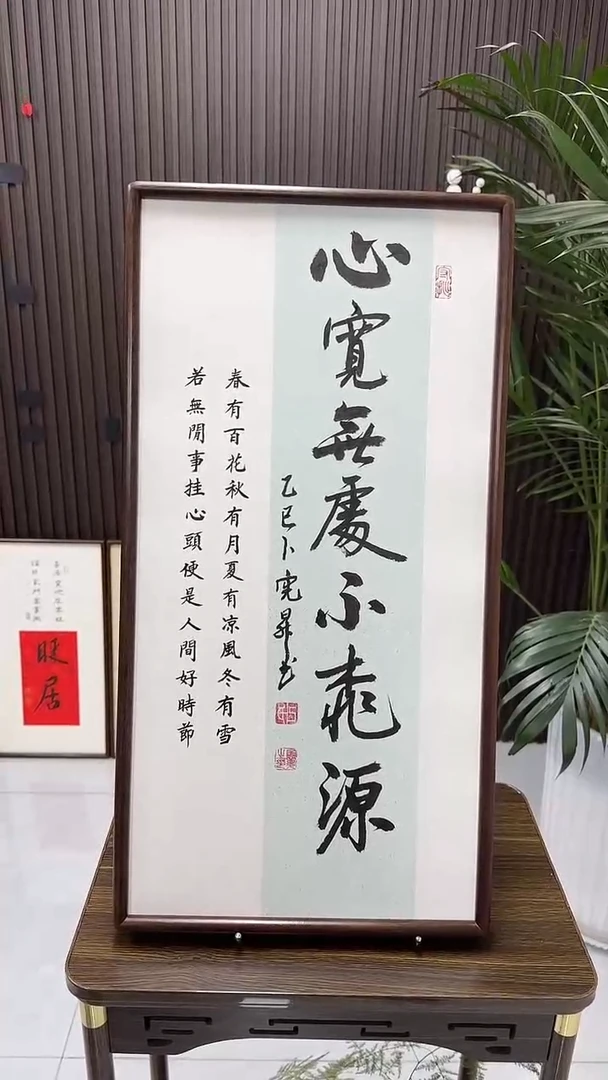 心寬無處不桃源
乙巳卜
春有百花秋有月夏有凉風冬有雪
若無閒事挂心頭便是人間好時節
旺居